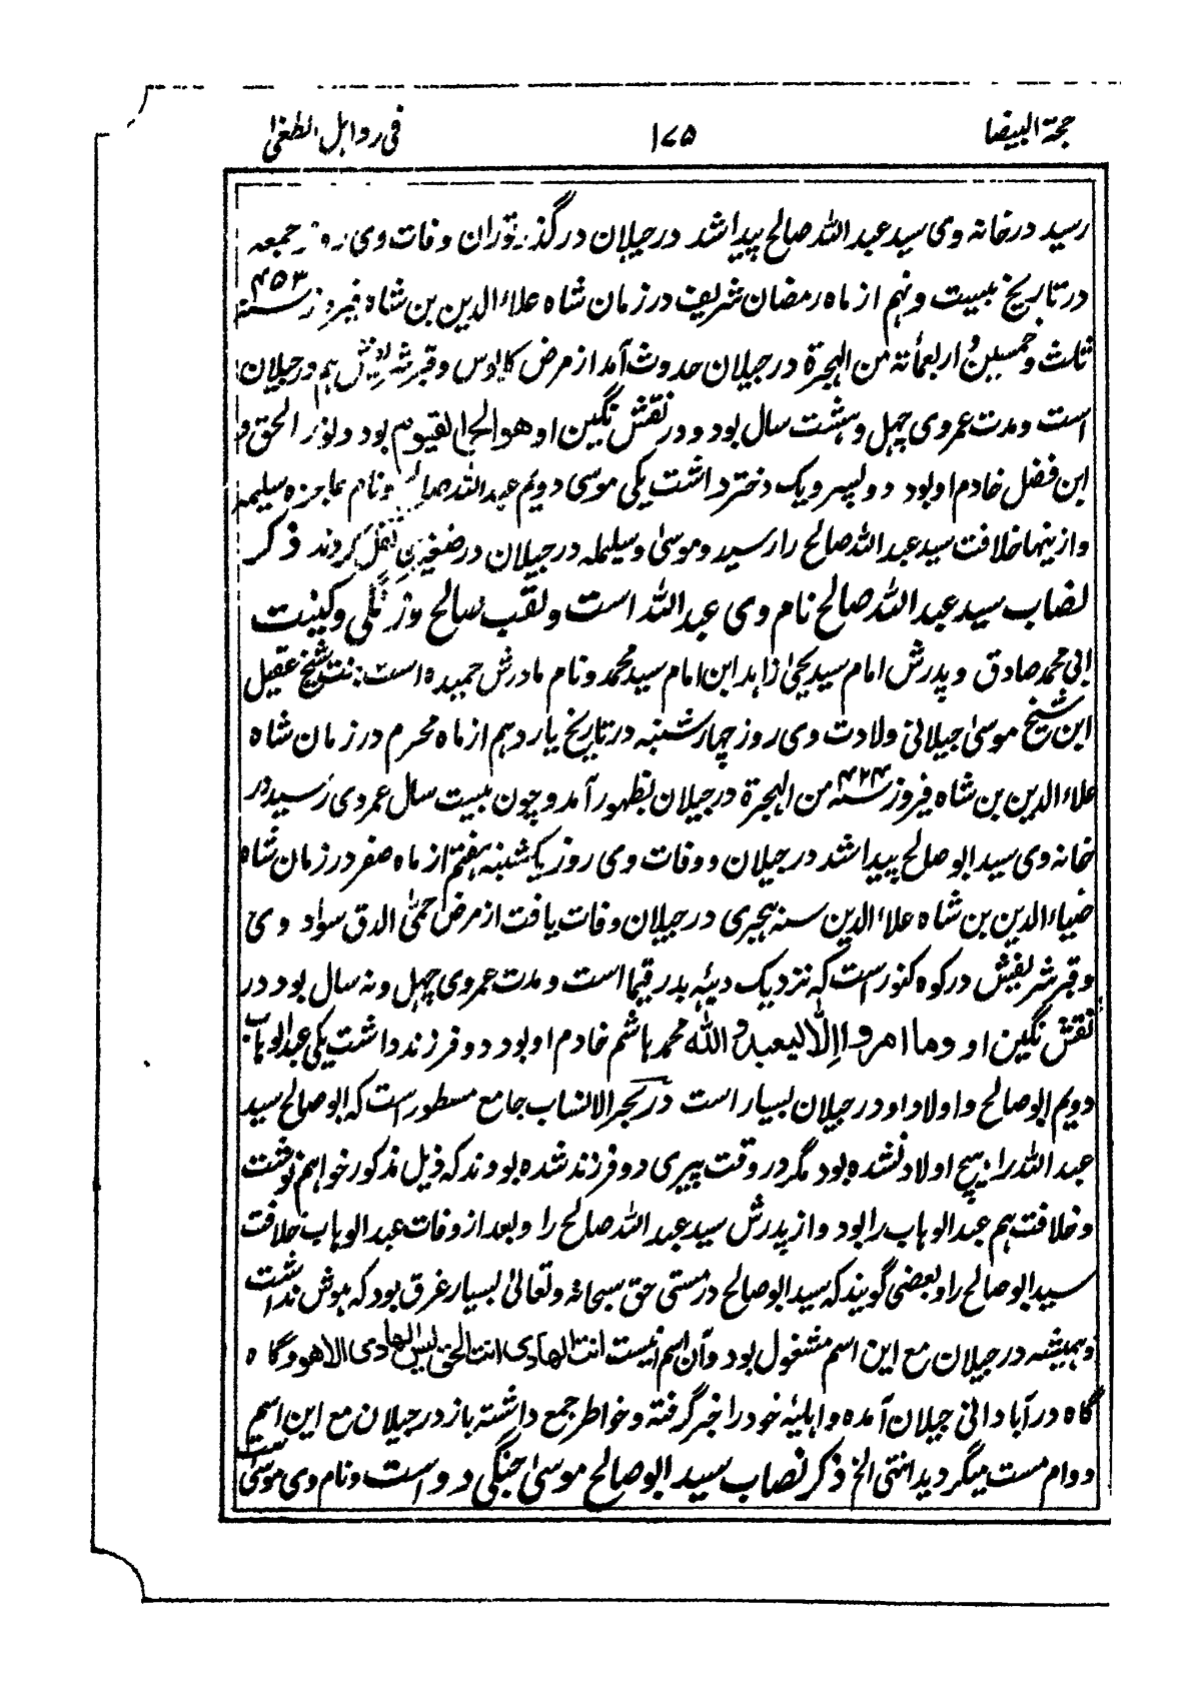 حجة البیضا ۱۷۵ فی روابل الطغیٰ
رسید در خانه وی سید عبد الله صالح پیدا شد در جیلان در گذر توران وفات وی روز جمعه
در تاریخ بیست و نهم از ماه رمضان شریف در زمان شاه علاء الدین بن شاه فیروز سنه ۴۵۳
ثلث و خمسین و اربعمأته من الهجرة در جیلان حدوث آمد از مرض کابوس و قبر شریفش هم در جیلان
است و مدت عمر وی چهل و هشت سال بود و در نقش نگین او هو الحی القیوم بود و نور الحق و
ابن فضل خادم او بود دو پسر و یک دختر داشت یکی موسی دویم عبد الله صالح و نام عاجزه سلیمه
و ازینها خلافت سید عبد الله صالح را رسید و موسیٰ و سلیمه در جیلان در صغیری نقل کردند ذکر
نصاب سید عبد الله صالح نام وی عبد الله است و لقب صالح و زنگی و کینت
ابی محمد صادق و پدرش امام سید یحیٰ زاهد ابن امام سید محمد و نام مادرش حمیده است بنت شیخ عقیل
ابن شیخ موسیٰ جیلانی ولادت وی روز چهار شنبه در تاریخ یازدهم از ماه محرم در زمان شاه
علاء الدین بن شاه فیروز سنه ۴۲۴ من الهجرة در جیلان بظهور آمد و چون بیست سال عمر وی رسید در
خانه وی سید ابو صالح پیدا شد در جیلان و وفات وی روز یکشنبه هفتم از ماه صفر در زمان شاه
ضیاء الدین بن شاه علاء الدین سنه هجری در جیلان وفات یافت از مرض حمّی الدق سواد وی
و قبر شریفش در کوه کنور است که نزدیک دیئه بدر قیما است و مدت عمر وی چهل و نه سال بود در
نقش نگین او وما امروا الا لیعبدوا الله محمد هاشم خادم او بود دو فرزند داشت یکی عبد الوهاب
دویم ابو صالح و اولاد او در جیلان بسیار است در بحر الانساب جامع مسطور است که ابو صالح سید
عبد الله را هیچ اولاد نشده بود مگر در وقت پیری دو فرزند شده بودند که ذیل مذکور خواهم نوشت
و خلافت هم عبد الوهاب را بود و از پدرش سید عبد الله صالح را و بعد از وفات عبد الوهاب خلافت
سید ابو صالح را و بعضی گویند که سید ابو صالح در مستی حق سبحانه و تعالیٰ بسیار غرق بود که هوش نداشت
و همیشه در جیلان مع این اسم مشغول بود و آن اسم اینست انت الهادی انت الحق لیس الهادی الا هو و گاه
گاه در آبادانی جیلان آمده و اهلیه خود را خبر گرفته و خواطر جمع داشته باز در جیلان مع این اسم
و وام مست میگردید انتی الخ ذکر نصاب سید ابو صالح موسیٰ جنگی دوست و نام وی موسیٰ است